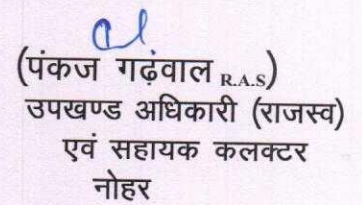 (पंकज गढ़ंवाल R.A.S)
उपखण्ड अधिकारी (राजस्व)
एवं सहायक कलक्टर
नोहर